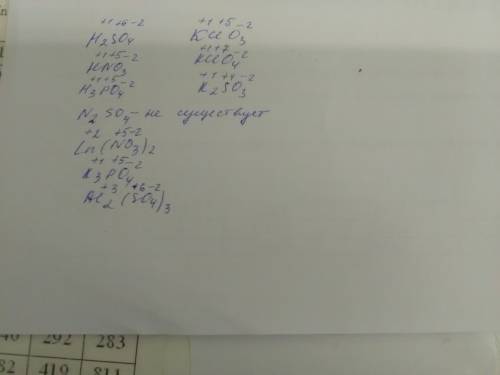 +1 +6 -2
H2SO4
+1 +5 -2
HNO3
+1 +5 -2
H3PO4
+1 +5 -2
KClO3
+1 +7 -2
KClO4
+1 +4 -2
K2SO3
N2SO4 - не существует
+2 +5 -2
(NO3)2
+1 +5 -2
K3PO4
+3 +6 -2
Al2(SO4)3
292 283
82 419 811